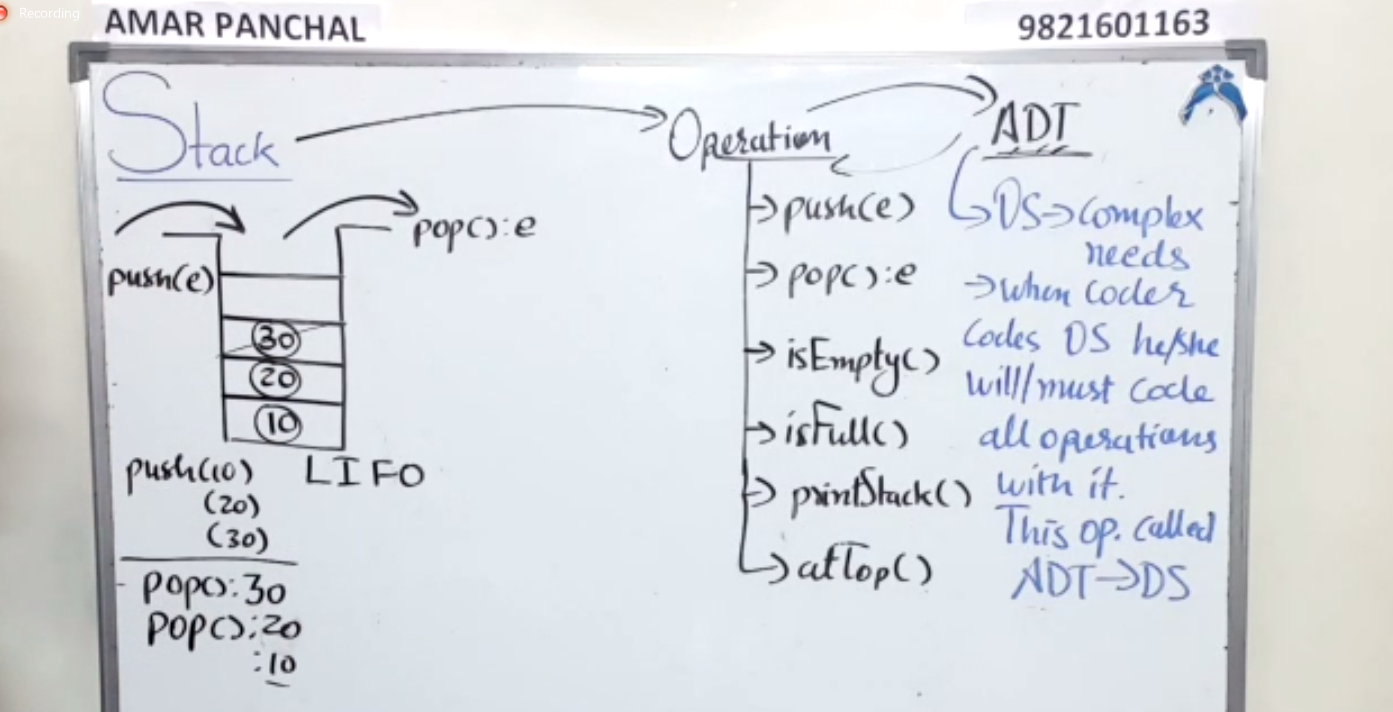 Recording
AMAR PANCHAL
9821601163
Stack
Operation
ADT
push(e)
pop():e
30
20
10
push(10)
(20)
(30)
LIFO
pop():30
pop():20
:10
push(e)
pop():e
isEmpty()
isFull()
printStack()
atTop()
DS→complex
needs
→when coder
codes DS he/she
will/must code
all operations
with it.
This op. called
ADT→DS